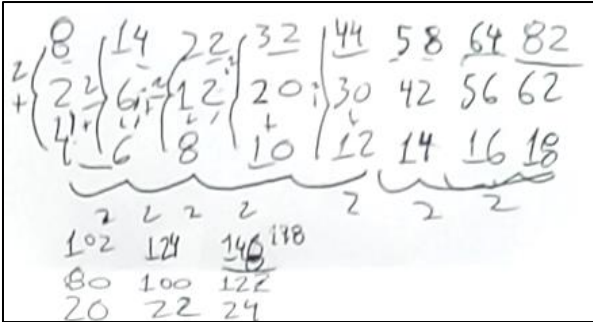 8 14 22 32 44 58 64 82
2 + 2 2 6 12 20 30 42 56 62
4 6 8 10 12 14 16 18
2 2 2 2 2 2 2
102 124 146 148
80 100 122
20 22 24